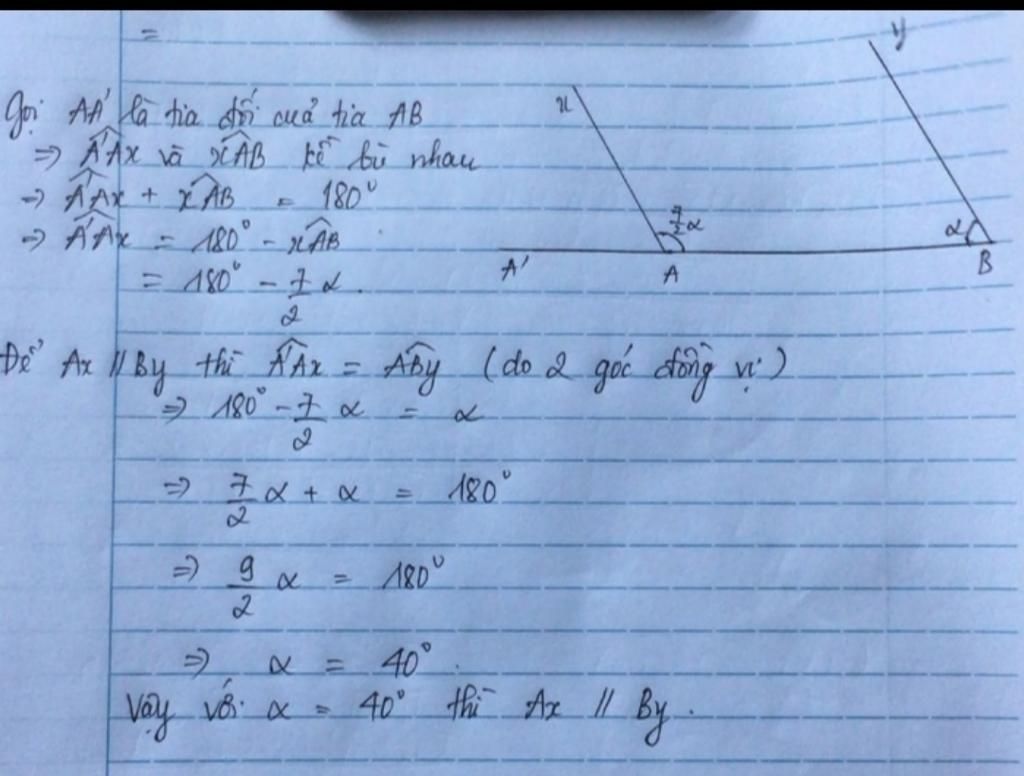 =
Gọi AA' là tia đối cuả tia AB
⇒ A'Ax và xAB kề bù nhau
⇒ A'Ax + xAB = 180°
⇒ A'Ax = 180° - xAB
= 180° - 7/2 α.
Để Ax // By thì A'Ax = ABy (do 2 góc đồng vị)
⇒ 180° - 7/2 α = α
⇒ 7/2 α + α = 180°
⇒ 9/2 α = 180°
⇒ α = 40°.
Vậy với α = 40° thì Ax // By.
x
y
7/2 α
α
A'
A
B